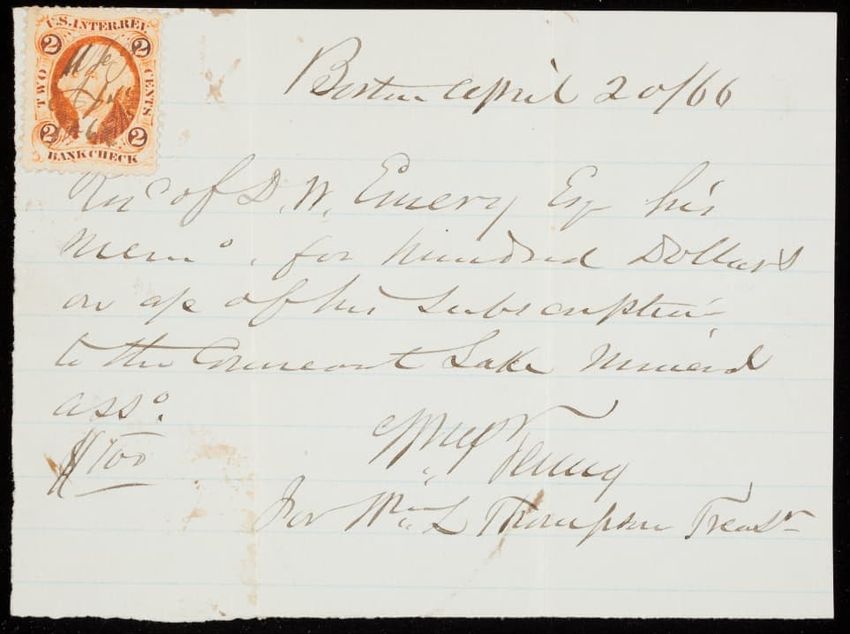 U.S. INTER. REV.
2 2
TWO CENTS
2 2
BANK CHECK
Boston April 20/66
Recd of D. W. Emery Esq his
Memo. for hundred Dollars
on a/c of his Subscription
to the Lake Mineral
asso.
$400
Wm Tenney
For Wm L Thompson Treasr